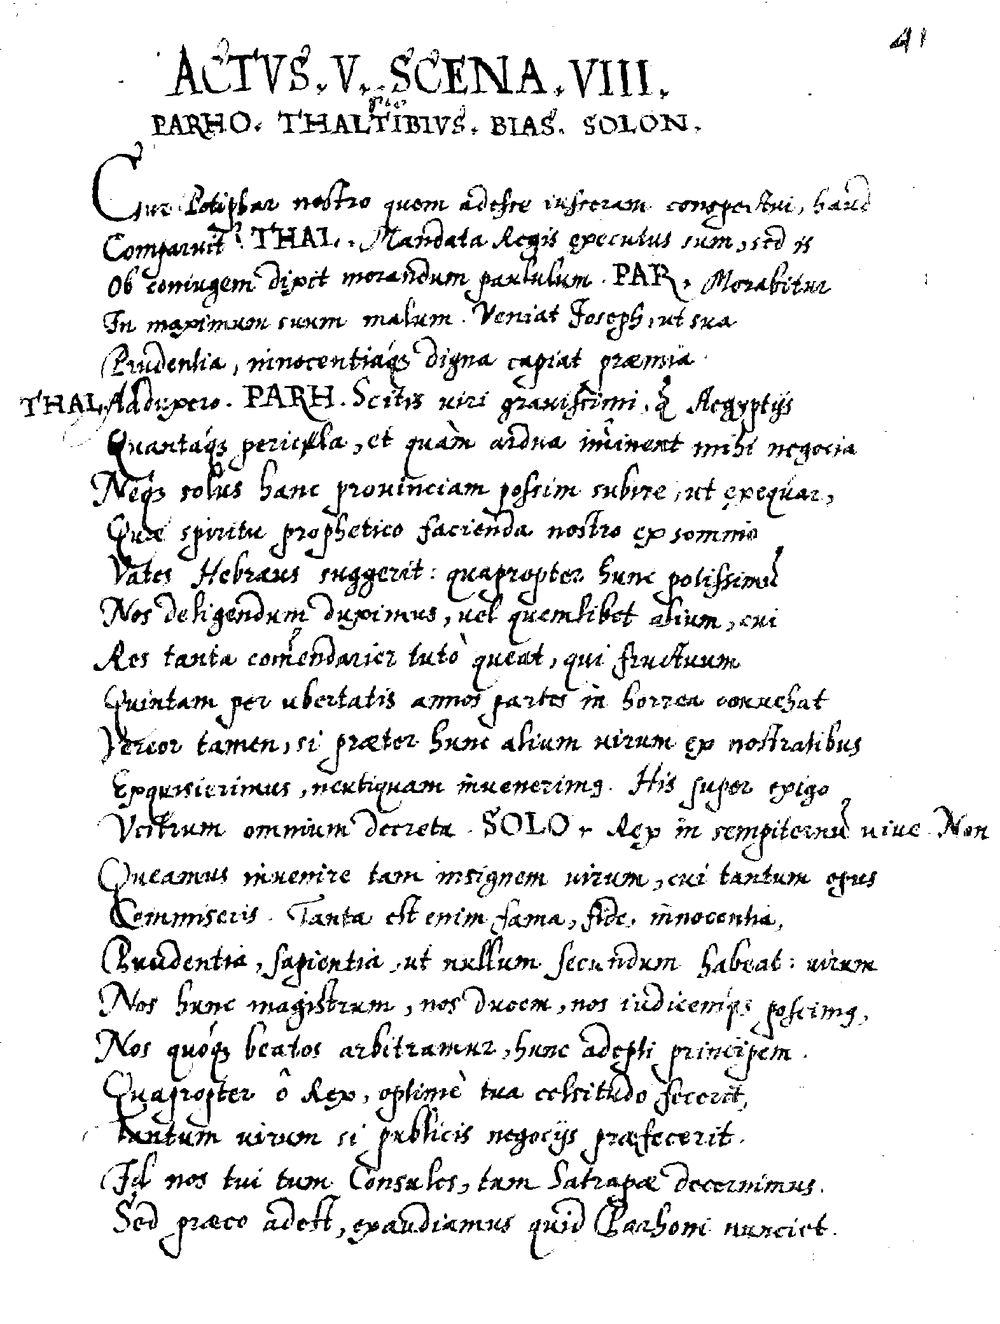 41
ACTVS. V. SCENA. VIII.
PARHO. THALTIBIVS. BIAS. SOLON.
Cur Potiphar nostro quem adesse iusseram conspectui, haud
Comparuit? THAL. Mandata Regis executus sum, sed is
Ob coniugem dixit morandum paululum. PAR. Morabitur
In maximum suum malum. Veniat Joseph, ut sua
Prudentia, innocentiaq; digna capiat præmia.
THAL. Adduxero. PARH. Scitis viri grauissimi, q̃ Aegyptijs
Quantaq; pericula, et quàm ardua im̃inent mihi negocia
Neq; solus hanc prouinciam possim subire, ut exequar,
Quæ spiritu prophetico facienda nostro ex somnio
Vates Hebræus suggerit: quapropter hunc potissimũ
Nos deligendum duximus, uel quemlibet alium, cui
Res tanta com̃endarier tutò queat, qui fructuum
Quintam per ubertatis annos partes in horrea conuehat
Vereor tamen, si præter hunc alium uirum ex nostratibus
Exquisierimus, neutiquam inuenerimq. His super exigo
Vestrum omnium decreta. SOLO. Rex in sempiternũ uiue. Non
Queamus inuenire tam insignem uirum, cui tantum opus
Commiseris. Tanta est enim fama, fide, innocentia,
Prudentia, sapientia, ut nullum secundum habeat: uirum
Nos hunc magistrum, nos ducem, nos iudicemq; poscimq,
Nos quoq; beatos arbitramur, hunc adepti principem.
Quapropter ô Rex, optimè tua celsitudo fecerit,
Tantum uirum si publicis negocijs præfecerit.
Id nos tui tum Consules, tum Satrapæ decernimus.
Sed præco adest, exaudiamus quid Parhoni nunciet.